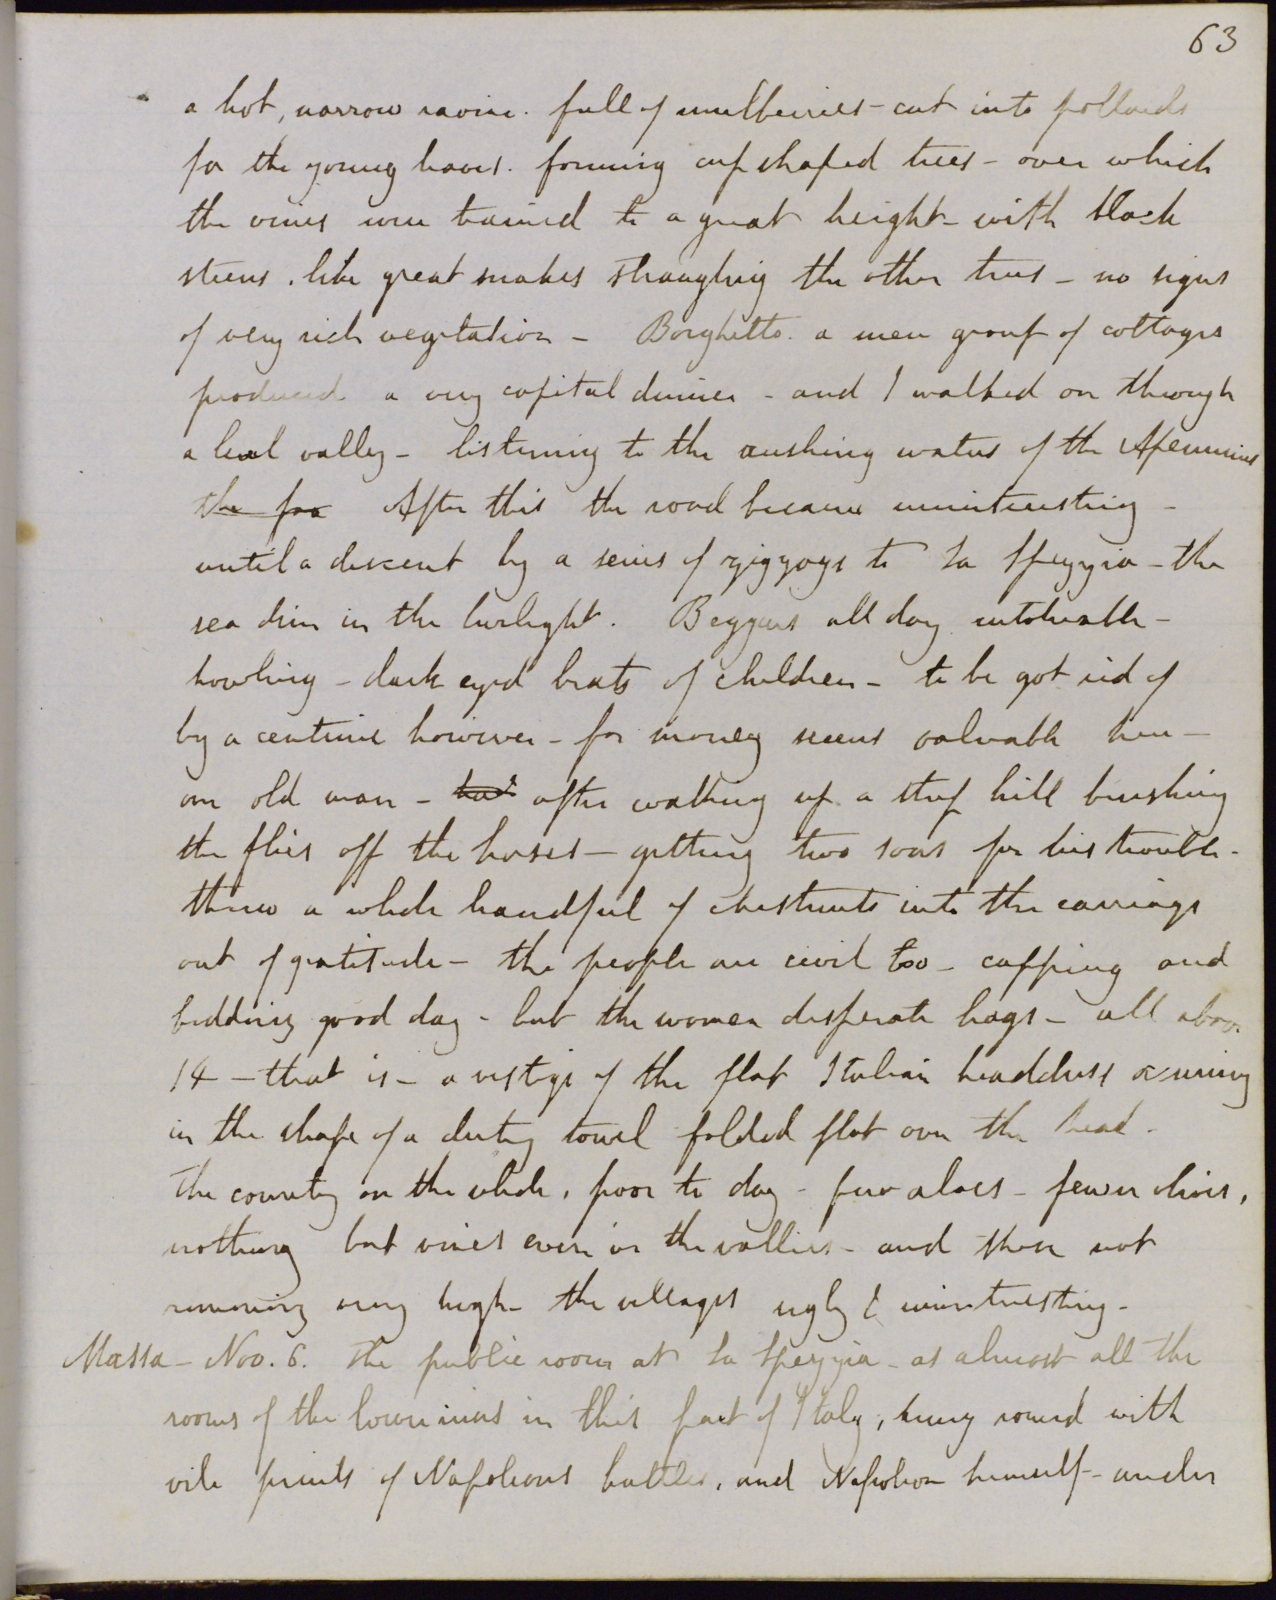 63
a hot, narrow ravine. full of mulberries - cut into pollards
for the young leaves. forming cup shaped trees - over which
the vines were trained to a great height - with black
stems. like great snakes straggling the other trees - no signs
of very rich vegetation - Borghetto. a mere group of cottages
produced a very capital dinner - and I walked on through
a level valley - listening to the rushing waters of the Apennines
the for After this the road became uninteresting -
until a descent by a series of zigzags to La Spezzia - the
sea dim in the twilight. Beggars all day intolerable -
howling - dark eyed brats of children - to be got rid of
by a centime however - for money seems valuable here -
an old man - had after walking up a steep hill brushing
the flies off the horses - getting two sous for his trouble -
threw a whole handful of chestnuts into the carriage
out of gratitude - the people are civil too - capping and
bidding good day - but the women desperate hags - all above
14 - that is - a vestige of the flat Italian headdress occurring
in the shape of a dirty towel folded flat over the head.
The country on the whole, poor to day - few aloes - fewer olives,
nothing but vines even in the vallies - and those not
running very high - the villages ugly & uninteresting -
Massa - Nov. 6. The public room at La Spezzia - as almost all the
rooms of the lower inns in this part of Italy, hung round with
vile prints of Napoleons battles, and Napoleon himself - under